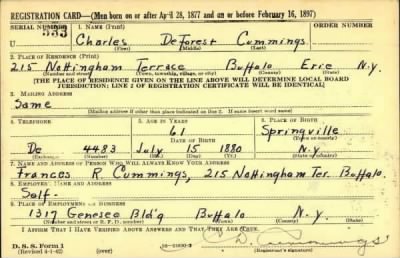 REGISTRATION CARD—(Men born on or after April 28, 1877 and on or before February 16, 1897)
SERIAL NUMBER 1. NAME (Print) ORDER NUMBER
533 Charles DeForest Cummings
(First) (Middle) (Last)
2. PLACE OF RESIDENCE (Print)
215 Nottingham Terrace Buffalo Erie N.Y.
(Number and street) (Town, township, village, or city) (County) (State)
[THE PLACE OF RESIDENCE GIVEN ON THE LINE ABOVE WILL DETERMINE LOCAL BOARD
JURISDICTION; LINE 2 OF REGISTRATION CERTIFICATE WILL BE IDENTICAL]
3. MAILING ADDRESS
Same
[Mailing address if other than place indicated on line 2. If same insert word same]
4. TELEPHONE 5. AGE IN YEARS 6. PLACE OF BIRTH
61 Springville
DATE OF BIRTH (Town or county)
De 4483 July 15 1880 N.Y.
(Exchange) (Number) (Mo.) (Day) (Yr.) (State or country)
7. NAME AND ADDRESS OF PERSON WHO WILL ALWAYS KNOW YOUR ADDRESS
Frances R Cummings, 215 Nottingham Ter. Buffalo
8. EMPLOYER'S NAME AND ADDRESS
Self-
9. PLACE OF EMPLOYMENT OR BUSINESS
1317 Genesee Bldg Buffalo N.Y.
(Number and street or R. F. D. number) (Town) (County) (State)
I AFFIRM THAT I HAVE VERIFIED ABOVE ANSWERS AND THAT THEY ARE TRUE.
D. S. S. Form 1
(Revised 4-1-42) C. D. Cummings